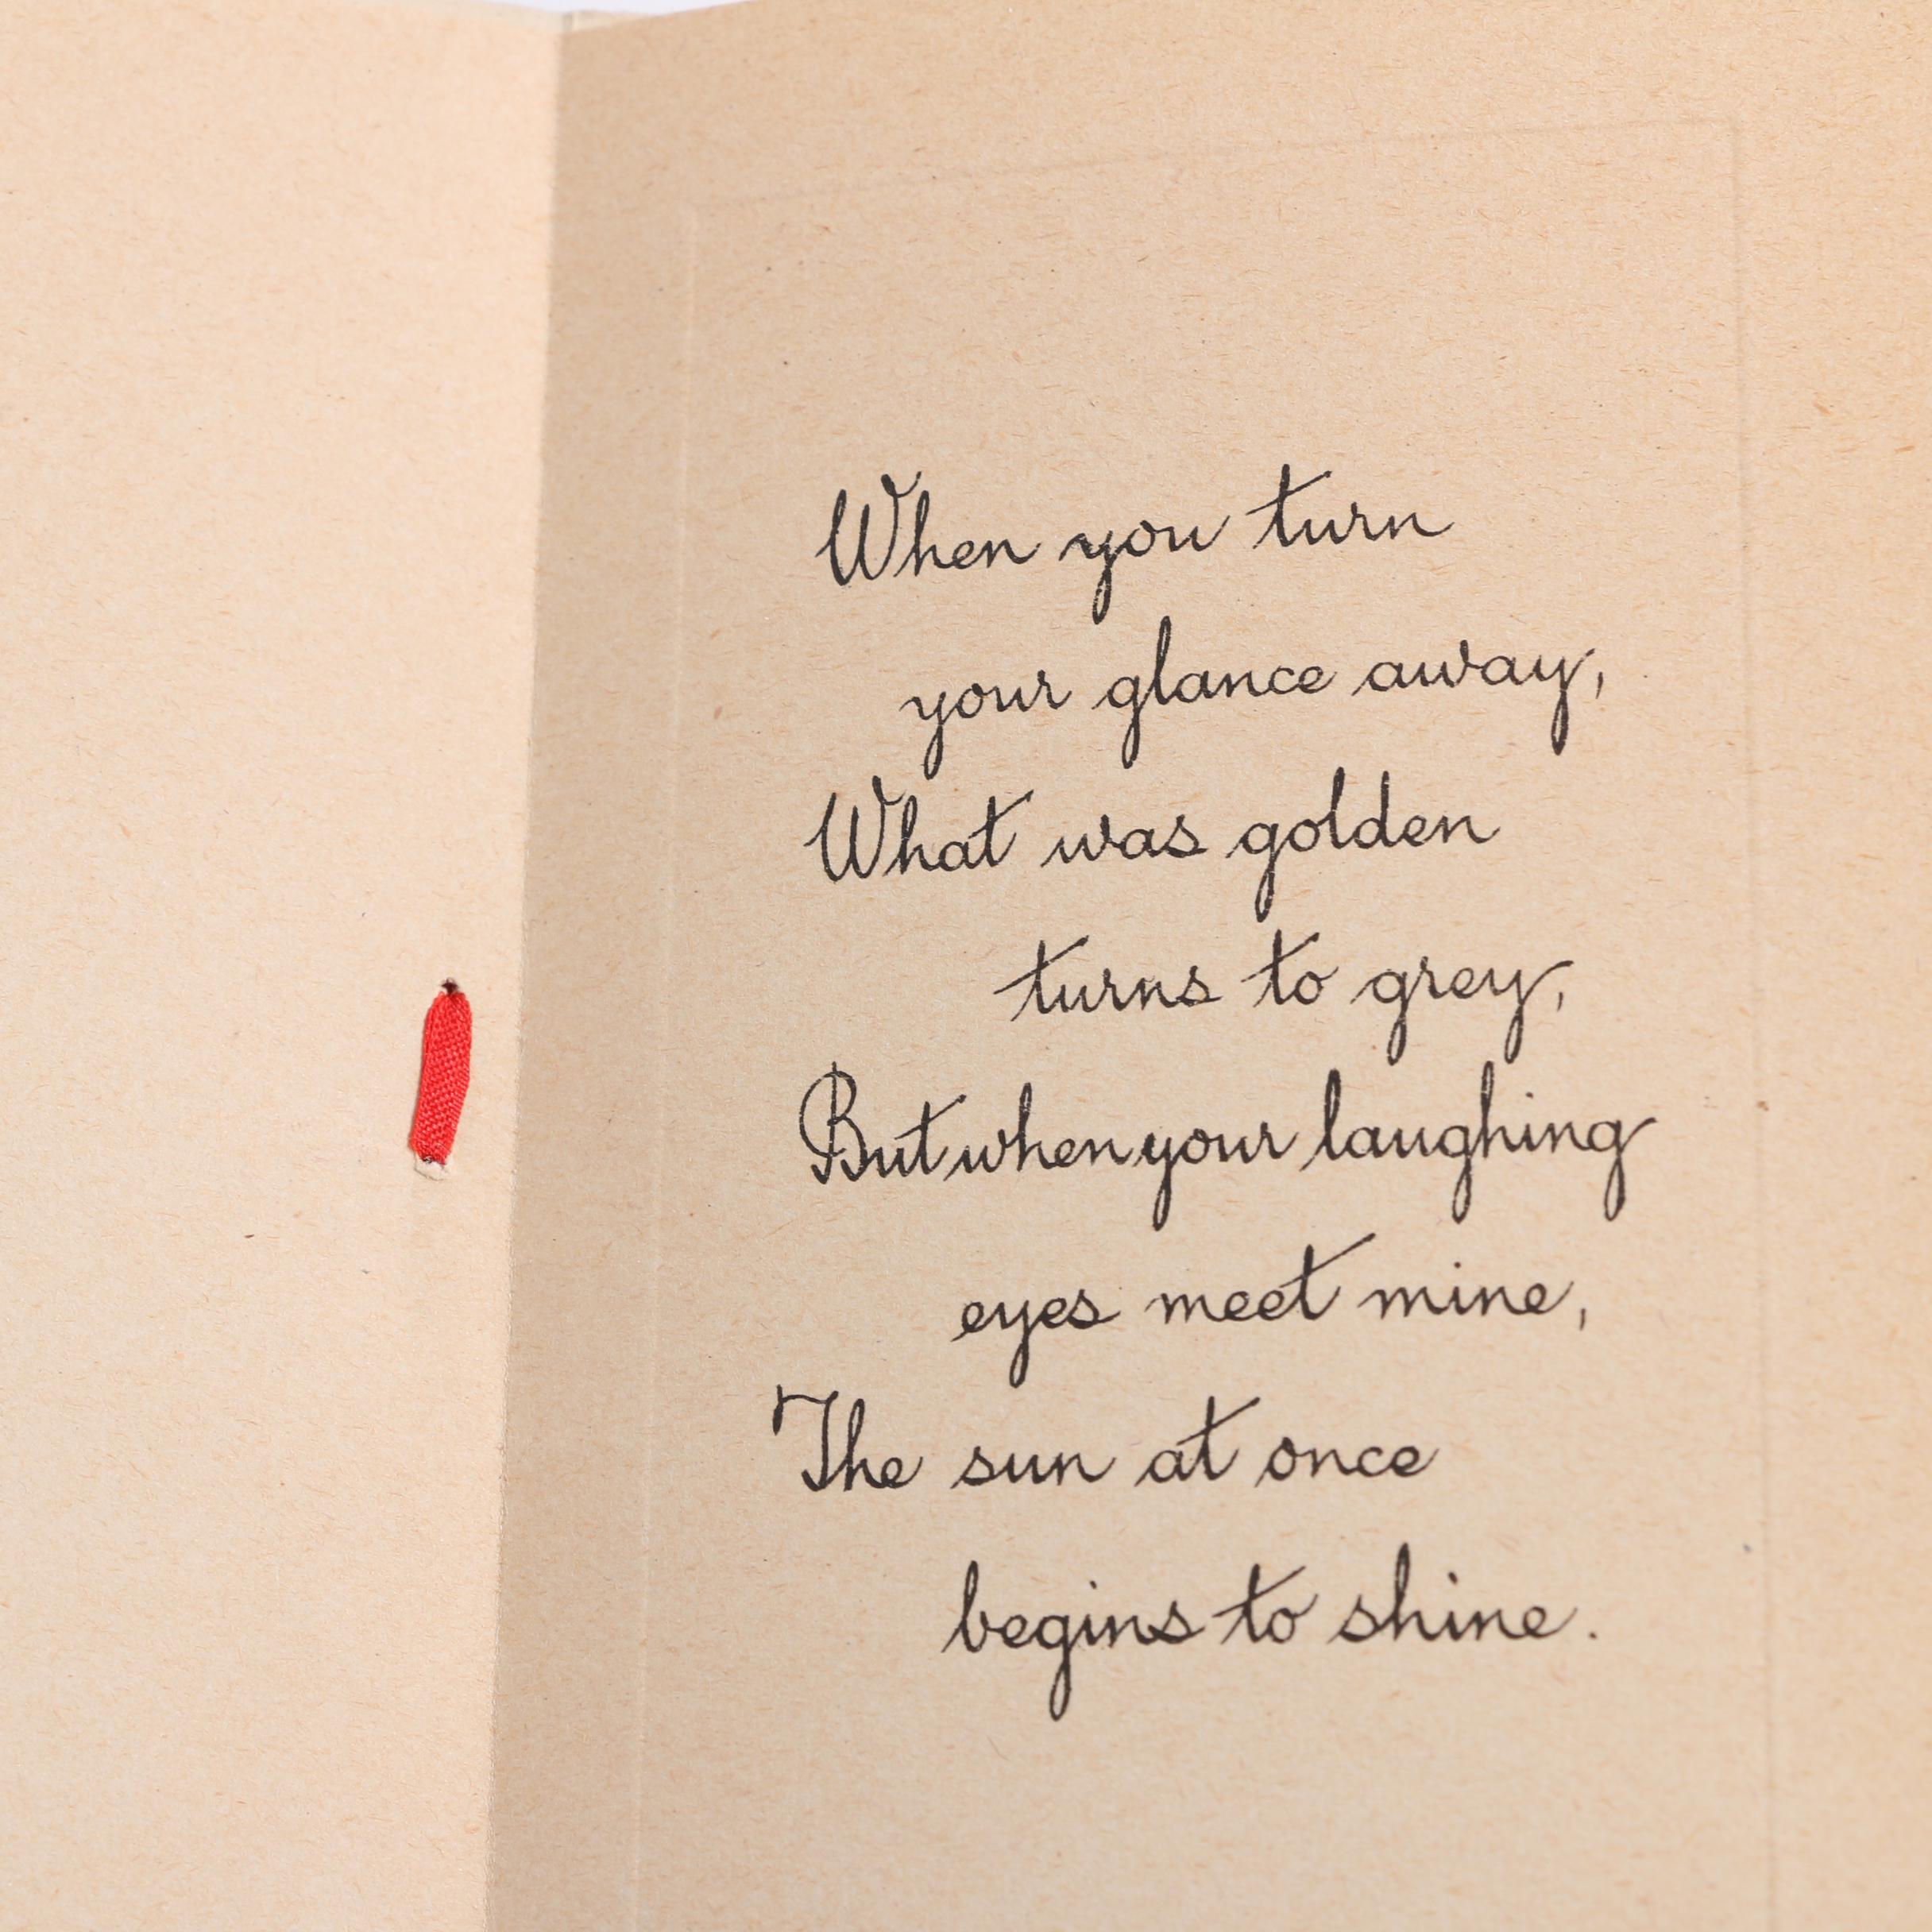 When you turn
your glance away,
What was golden
turns to grey,
But when your laughing
eyes meet mine,
The sun at once
begins to shine.